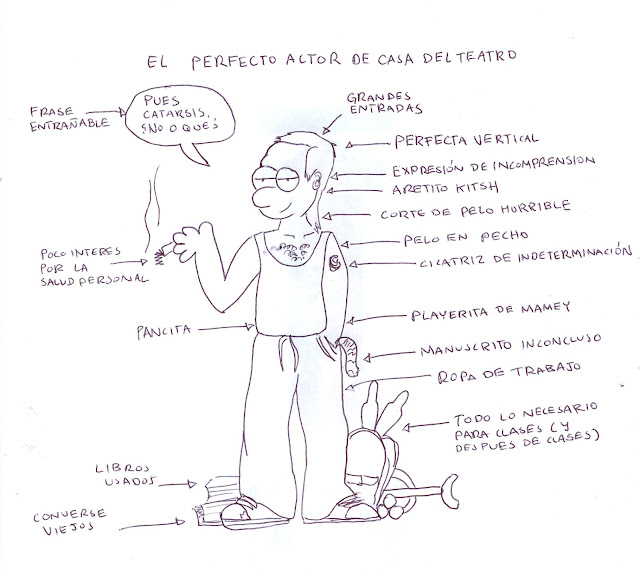 EL PERFECTO ACTOR DE CASA DEL TEATRO
FRASE
ENTRAÑABLE
PUES
CATARSIS,
¿NO O QUÉ?
GRANDES
ENTRADAS
PERFECTA VERTICAL
EXPRESIÓN DE INCOMPRENSION
ARETITO KITSH
CORTE DE PELO HORRIBLE
PELO EN PECHO
CICATRIZ DE INDETERMINACIÓN
POCO INTERES
POR LA
SALUD PERSONAL
PANCITA
PLAYERITA DE MAMEY
MANUSCRITO INCONCLUSO
ROPA DE TRABAJO
TODO LO NECESARIO
PARA CLASES (Y
DESPUES DE CLASES)
LIBROS
USADOS
CONVERSE
VIEJOS